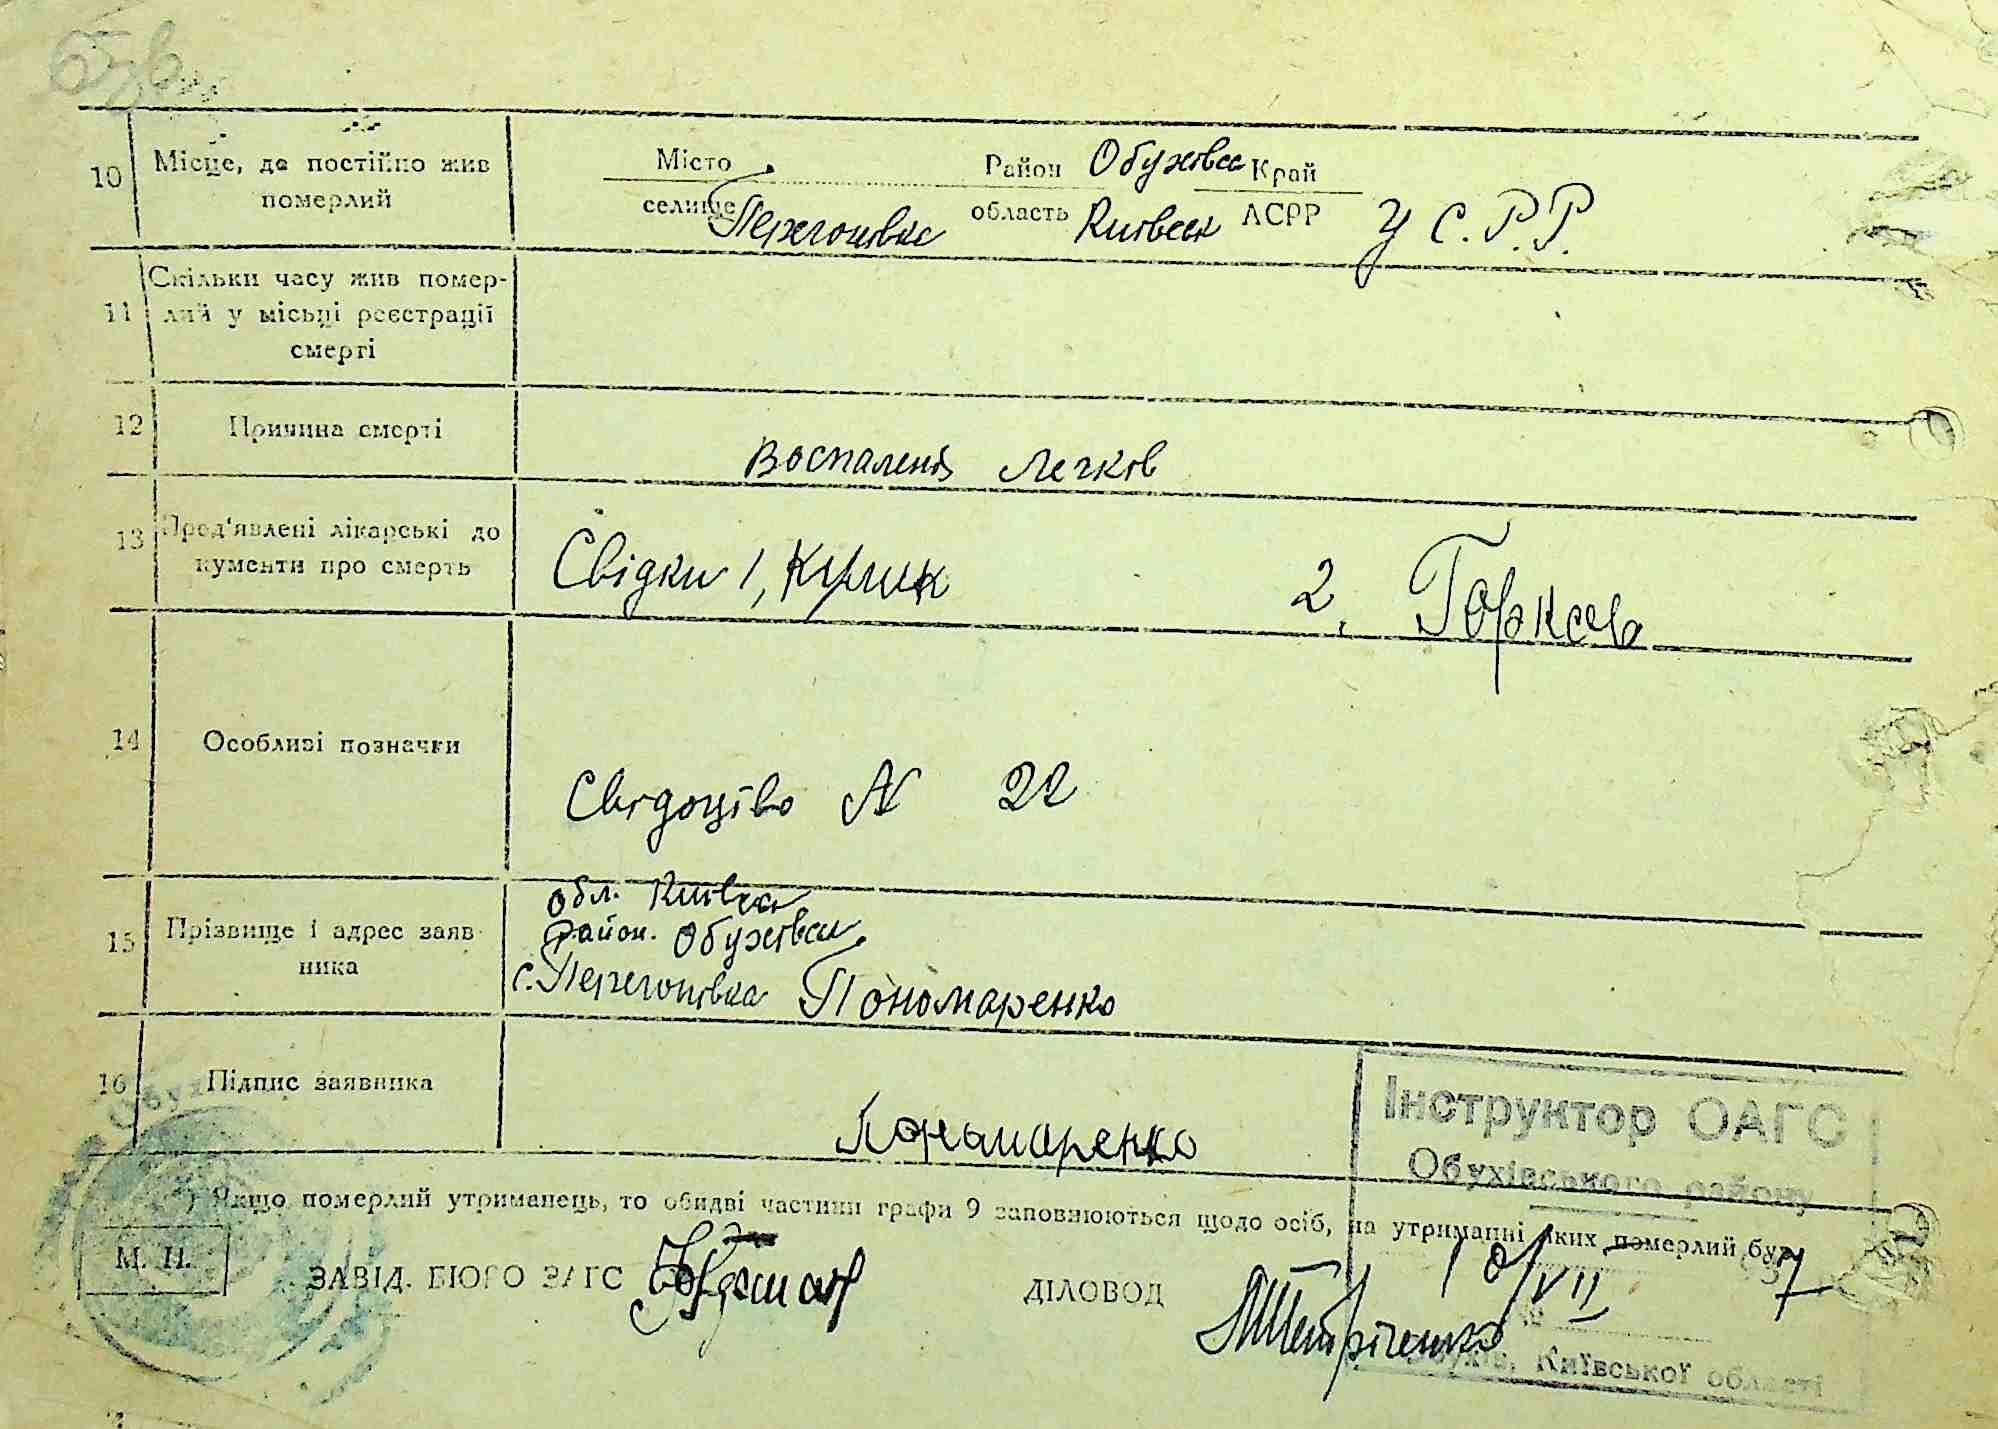 10 Місце, де постійно жив померлий
Місто Район Обухівськ Край
селище Перегонівка область Київськ АСРР У С.Р.Р.
11 Скільки часу жив помер-
лий у місці реєстрації
смерті
12 Причина смерті
Воспаленія Легків
13 Пред'явлені лікарські до
кументи про смерть
Свідки 1, Кулик 2.
14 Особливі позначки
Свідоцтво N 22
15 Прізвище і адрес заяв
ника
обл. Київська
район. Обухівськ
с. Перегонівка Пономаренко
16 Підпис заявника
Пономаренко
Інструктор ОАГС
Обухівського району
*) Якщо померлий утриманець, то обидві частини графи 9 заповнюються щодо осіб, на утриманні яких померлий був.
10/VII 37
М. П.
ЗАВІД. БЮРО ЗАГС
ДІЛОВОД
Обухів, Київської області